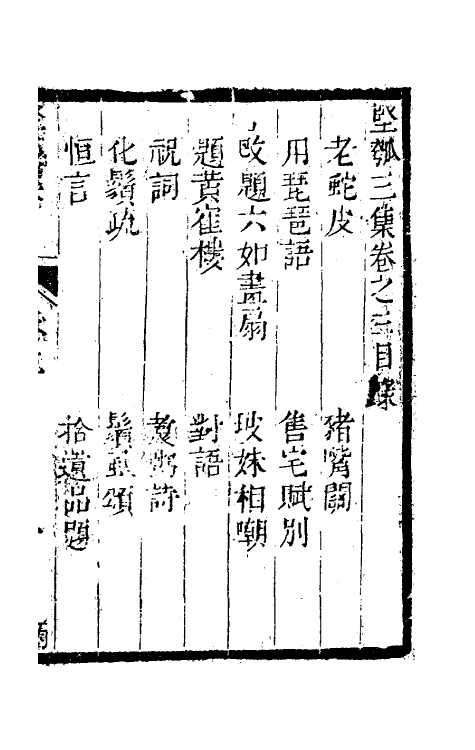 堅瓠三集卷之三目錄
老蛇皮　豬嘴關
用琵琶語　售宅賦別
改題六如畫扇　坡妹相嘲
題黃崔樓　對語
祝詞　裁粥詩
化鬚疏　鬚虱頌
恒言　拾遺品題